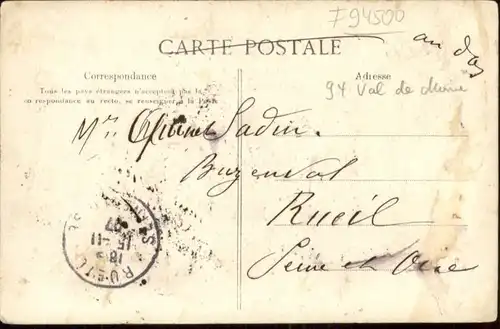 F94500
an dos
CARTE POSTALE
Correspondance
Adresse
Tous les pays étrangers n'acceptent pas la
correspondance au recto, se renseigner à la Poste
94 Val de Marne
Sadin.
Buzenval
Rueil
Seine et Oise
RUEIL
15 - 11